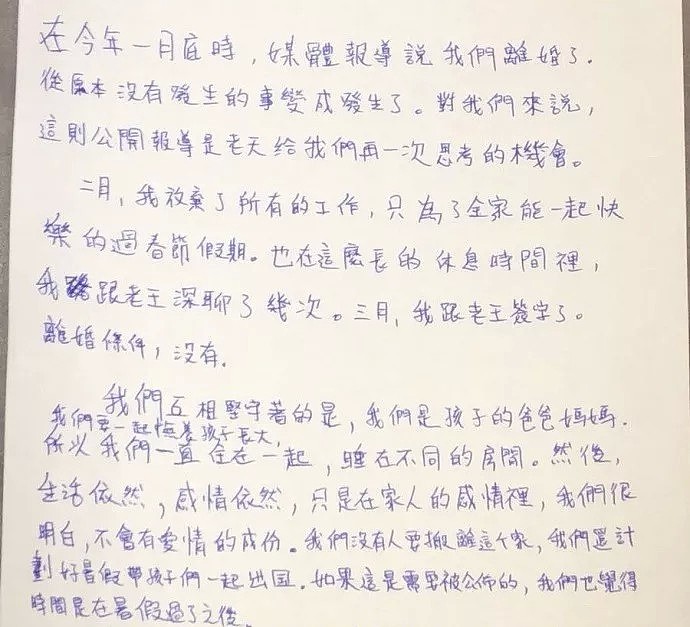 在今年一月底時，媒體報導說我們離婚了.
從原本沒有發生的事變成發生了。對我們來說，
這則公開報導是老天給我們再一次思考的機會。
二月，我放棄了所有的工作，只為了全家能一起快
樂的過春節假期。也在這麼長的休息時間裡，
我跟老王深聊了幾次。三月，我跟老王簽字了。
離婚條件，沒有.
我們互相堅守著的是，我們是孩子的爸爸媽媽.
我們要一起撫養孩子長大，
所以我們一直住在一起，睡在不同的房間。然後，
生活依然，感情依然，只是在家人的感情裡，我們很
明白，不會有愛情的成份。我們沒有人要搬離這个家，我們還計
劃好暑假帶孩子們一起出國．如果這是需要被公佈的，我們也覺得
時間是在暑假過了之後。